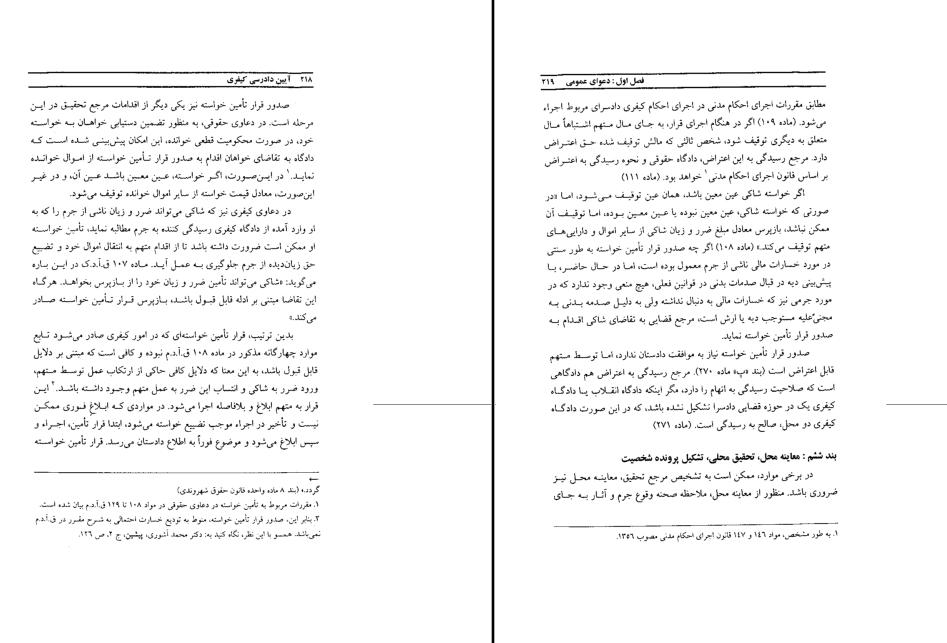 ۲۱۸ آیین دادرسی کیفری
صدور قرار تأمین خواسته نیز یکی دیگر از اقدامات مرجع تحقیق در این
مرحله است. در دعاوی حقوقی، به منظور تضمین دستیابی خواهان به خواسته
خود، در صورت محکومیت قطعی خوانده، این امکان پیش‌بینی شده است که
دادگاه به تقاضای خواهان اقدام به صدور قرار تأمین خواسته از اموال خوانده
نماید.۱ در این‌صورت، اگر خواسته، عین معین باشد عین آن، و در غیر
این‌صورت، معادل قیمت خواسته از سایر اموال خوانده توقیف می‌شود.
در دعاوی کیفری نیز که شاکی می‌تواند ضرر و زیان ناشی از جرم را که به
او وارد آمده از دادگاه کیفری رسیدگی کننده به جرم مطالبه نماید، تأمین خواسته
او ممکن است ضرورت داشته باشد تا از اقدام متهم به انتقال اموال خود و تضییع
حق زیان‌دیده از جرم جلوگیری به عمل آید. ماده ۱۰۷ ق.آ.د.ک در این باره
می‌گوید: «شاکی می‌تواند تأمین ضرر و زیان خود را از بازپرس بخواهد. هرگاه
این تقاضا مبتنی بر ادله قابل قبول باشد، بازپرس قرار تأمین خواسته صادر
می‌کند.»
بدین ترتیب، قرار تأمین خواسته‌ای که در امور کیفری صادر می‌شود تابع
موارد چهارگانه مذکور در ماده ۱۰۸ ق.آ.د.م نبوده و کافی است که مبتنی بر دلایل
قابل قبول باشد، به این معنا که دلایل کافی حاکی از ارتکاب عمل توسط متهم،
ورود ضرر به شاکی و انتساب این ضرر به عمل متهم وجود داشته باشد.۲ این
قرار به متهم ابلاغ و بلافاصله اجرا می‌شود. در مواردی که ابلاغ فوری ممکن
نیست و تأخیر در اجراء موجب تضییع خواسته می‌شود، ابتدا قرار تأمین، اجراء و
سپس ابلاغ می‌شود و موضوع فوراً به اطلاع دادستان می‌رسد. قرار تأمین خواسته
←
گردد.» (بند ۸ ماده واحده قانون حقوق شهروندی)
۱. مقررات مربوط به تأمین خواسته در دعاوی حقوقی در مواد ۱۰۸ تا ۱۲۹ ق.آ.د.م بیان شده است.
۲. بنابر این، صدور قرار تأمین خواسته، منوط به تودیع خسارت احتمالی به شرح مقرر در ق.آ.د.م
نمی‌باشد. همسو با این نظر، نگاه کنید به: دکتر محمد آشوری، پیشین، ج ۲، ص ۱۲۶.
فصل اول : دعوای عمومی ۲۱۹
مطابق مقررات اجرای احکام مدنی در اجرای احکام کیفری دادسرای مربوط اجراء
می‌شود. (ماده ۱۰۹) اگر در هنگام اجرای قرار، به جای مال متهم اشتباهاً مال
متعلق به دیگری توقیف شود، شخص ثالثی که مالش توقیف شده حق اعتراض
دارد. مرجع رسیدگی به این اعتراض، دادگاه حقوقی و نحوه رسیدگی به اعتراض
بر اساس قانون اجرای احکام مدنی۱ خواهد بود. (ماده ۱۱۱)
اگر خواسته شاکی عین معین باشد، همان عین توقیف می‌شود، اما «در
صورتی که خواسته شاکی، عین معین نبوده یا عین معین بوده، اما توقیف آن
ممکن نباشد، بازپرس معادل مبلغ ضرر و زیان شاکی از سایر اموال و دارایی‌های
متهم توقیف می‌کند.» (ماده ۱۰۸) اگر چه صدور قرار تأمین خواسته به طور سنتی
در مورد خسارات مالی ناشی از جرم معمول بوده است، اما در حال حاضر، با
پیش‌بینی دیه در قبال صدمات بدنی در قوانین فعلی، هیچ منعی وجود ندارد که در
مورد جرمی نیز که خسارات مالی به دنبال نداشته ولی به دلیل صدمه بدنی به
مجنیٌ‌علیه مستوجب دیه یا ارش است، مرجع قضایی به تقاضای شاکی اقدام به
صدور قرار تأمین خواسته نماید.
صدور قرار تأمین خواسته نیاز به موافقت دادستان ندارد، اما توسط متهم
قابل اعتراض است (بند «پ» ماده ۲۷۰). مرجع رسیدگی به اعتراض هم دادگاهی
است که صلاحیت رسیدگی به اتهام را دارد، مگر اینکه دادگاه انقلاب یا دادگاه
کیفری یک در حوزه قضایی دادسرا تشکیل نشده باشد، که در این صورت دادگاه
کیفری دو محل، صالح به رسیدگی است. (ماده ۲۷۱)
بند ششم : معاینه محل، تحقیق محلی، تشکیل پرونده شخصیت
در برخی موارد، ممکن است به تشخیص مرجع تحقیق، معاینه محل نیز
ضروری باشد. منظور از معاینه محل، ملاحظه صحنه وقوع جرم و آثار به جای
۱. به طور مشخص، مواد ۱۴۶ و ۱۴۷ قانون اجرای احکام مدنی مصوب ۱۳۵۶.